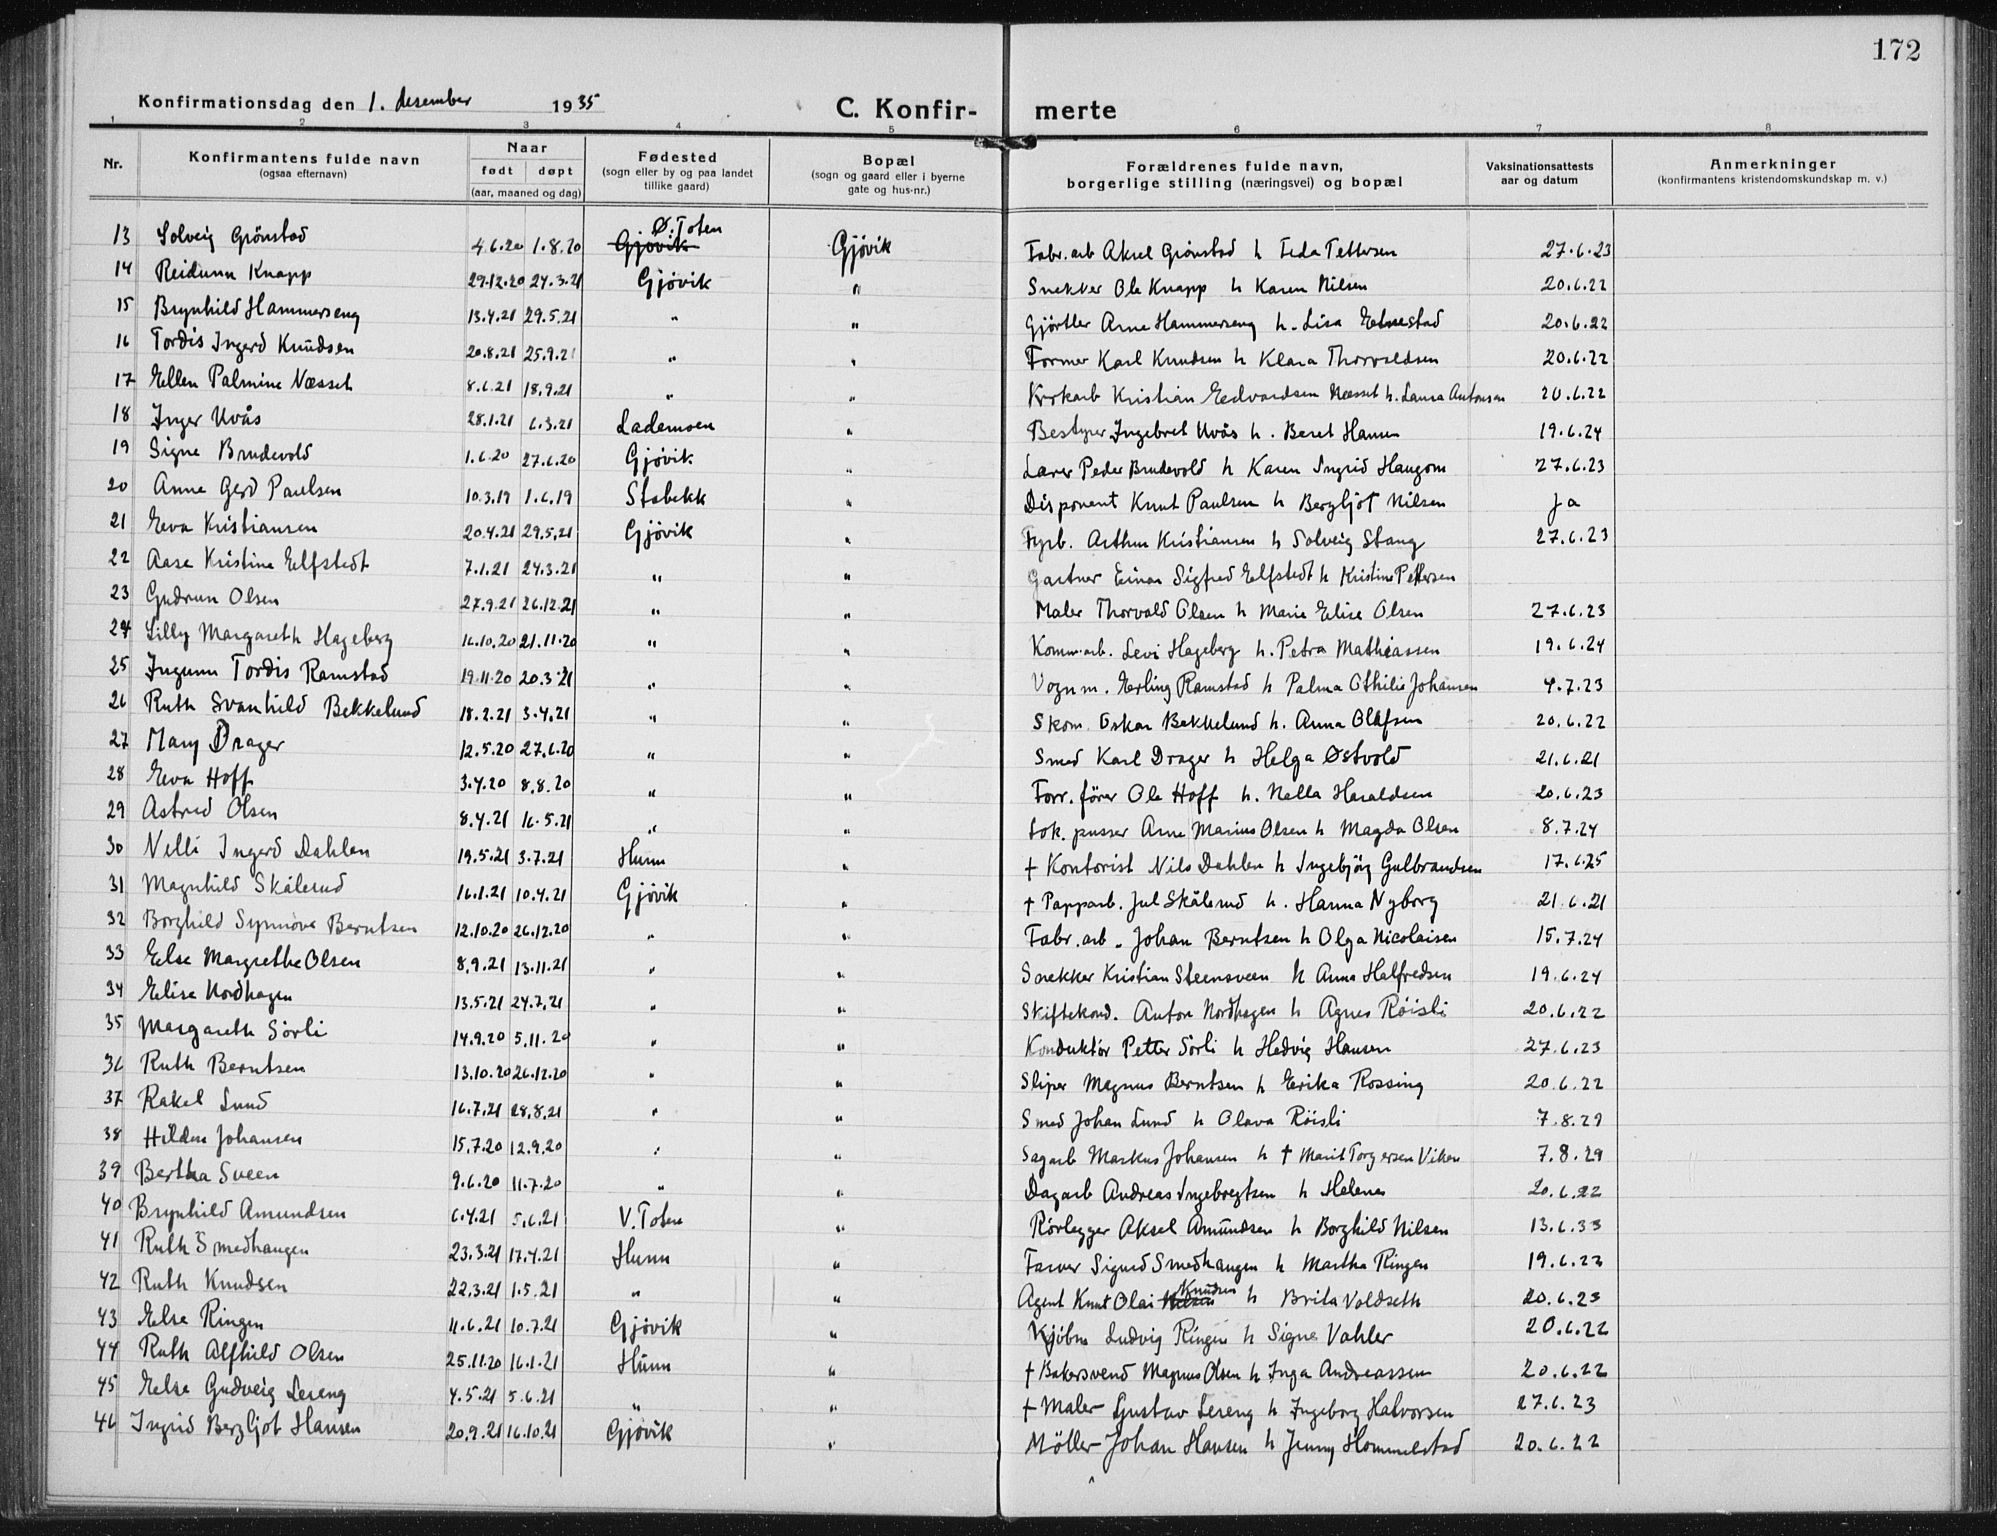 172
Konfirmationsdag den 1. desember 1935
C. Konfir- merte
1 2 3 4 5 6 7 8
Nr. Konfirmantens fulde navn (ogsaa efternavn) Naar født døpt (aar, maaned og dag) Fødested (sogn eller by og paa landet tillike gaard) Bopæl (sogn og gaard eller i byerne gate og hus-nr.) Forældrenes fulde navn, borgerlige stilling (næringsvei) og bopæl Vaksinationsattests aar og datum Anmerkninger (konfirmantens kristendomskundskap m. v.)
13 Solveig Grönstad 4.6.20 1.8.20 Gjövik Ø. Toten Gjövik Fabr.arb Aksel Grönstad h Teda Pettersen 27.6.23
14 Reidunn Knapp 29.12.20 24.3.21 Gjövik " Snekker Ole Knapp h Karen Nilsen 20.6.22
15 Brynhild Hammerseng 13.4.21 29.5.21 " " Gjörtler Arne Hammerseng h. Lisa Elnestad 20.6.22
16 Tordis Ingerd Knudsen 20.8.21 25.9.21 " " Former Karl Knudsen h Klara Thorvaldsen 20.6.22
17 Ellen Palmine Næsset 8.6.21 18.9.21 " " Verkarb Kristian Edvardsen Næsset h. Laura Antonsen 20.6.22
18 Inger Uvås 28.1.21 6.3.21 Lademoen " Bestyrer Ingebret Uvås h. Beret Hansen 19.6.24
19 Signe Brudevold 1.6.20 27.6.20 Gjövik " Lærer Peder Brudevold h Karen Ingrid Haugom 27.6.23
20 Anne Gerd Paulsen 10.3.19 1.6.19 Stabekk " Disponent Knut Paulsen h Bergljot Nilsen Ja
21 Eva Kristiansen 20.4.21 29.5.21 Gjövik " Fyrb. Arthur Kristiansen h Solveig Stang 27.6.23
22 Aase Kristine Elfstedt 7.1.21 24.3.21 " " Gartner Einar Sigfred Elfstedt h Kristine Pettersen
23 Gudrun Olsen 27.9.21 26.12.21 " " Maler Thorvald Olsen h Marie Elise Olsen 27.6.23
24 Lilly Margareth Hageberg 16.10.20 21.11.20 " " Komm.arb. Levi Hageberg h. Petra Mathiassen 19.6.24
25 Ingunn Tordis Ramstad 19.11.20 20.3.21 " " Vognm. Erling Ramstad h Palma Othilie Johansen 4.7.23
26 Ruth Svanhild Bekkelund 18.2.21 3.4.21 " " Skom. Oskar Bekkelund h. Anna Olafsen 20.6.22
27 Mary Drager 12.5.20 27.6.20 " " Smed Karl Drager h Helga Østvold 21.6.21
28 Eva Hoff 3.4.20 8.8.20 " " Forr.förer Ole Hoff h. Nella Haraldsen 20.6.23
29 Astrid Olsen 8.4.21 16.5.21 " " Lok. pusser Arne Marius Olsen h Magda Olsen 8.7.24
30 Nelli Ingerd Dahlen 19.5.21 3.7.21 Hunn " † Kontorist Nils Dahlen h Ingebjörg Gulbrandsen 17.6.25
31 Magnhild Skålerud 16.1.21 10.4.21 Gjövik " † Papparb. Jul Skålerud h. Hanna Nyborg 21.6.21
32 Borghild Synnöve Berntsen 12.10.20 26.12.20 " " Fabr.arb. Johan Berntsen h Olga Nicolaisen 15.7.24
33 Else Margrethe Olsen 8.9.21 13.11.21 " " Snekker Kristian Steensveen h Anna Halfredsen 19.6.24
34 Elise Nordhagen 13.5.21 24.7.21 " " Skiftekond. Anton Nordhagen h Agnes Röisli 20.6.22
35 Margareth Sörli 14.9.20 5.11.20 " " Konduktör Petter Sörli h Hedvig Hansen 27.6.23
36 Ruth Berntsen 13.10.20 26.12.20 " " Sliper Magnus Berntsen h Erika Rossing 20.6.22
37 Rakel Lund 16.7.21 28.8.21 " " Smed Johan Lund h Olava Röisli 7.8.29
38 Hildur Johansen 15.7.20 12.9.20 " " Sagarb Markus Johansen h † Marit Torgersen Viken 7.8.29
39 Bertha Sveen 9.6.20 11.7.20 " " Dagarb Andreas Ingebregtsen h Helene 20.6.22
40 Brynhild Amundsen 6.4.21 5.6.21 V. Toten " Rörlegger Aksel Amundsen h Borghild Nilsen 13.6.33
41 Ruth Smedhaugen 23.3.21 17.4.21 Hunn " Farver Sigurd Smedhaugen h Martha Ringen 19.6.22
42 Ruth Knudsen 22.3.21 1.5.21 " " Agent Knut Olai Nilsen Knudsen h Brita Voldseth 20.6.23
43 Else Ringen 11.6.21 10.7.21 Gjövik " Kjöbm Ludvig Ringen h Signe Vahler 20.6.22
44 Ruth Alfhild Olsen 25.11.20 16.1.21 Hunn " † Bakersvend Magnus Olsen h Inga Andreassen 20.6.22
45 Else Gudveig Lereng 4.5.21 5.6.21 " " † Maler Gustav Lereng h Ingeborg Halvorsen 27.6.23
46 Ingrid Bergljot Hansen 20.9.21 16.10.21 Gjövik " Möller Johan Hansen h Jenny Hommelstad 20.6.22